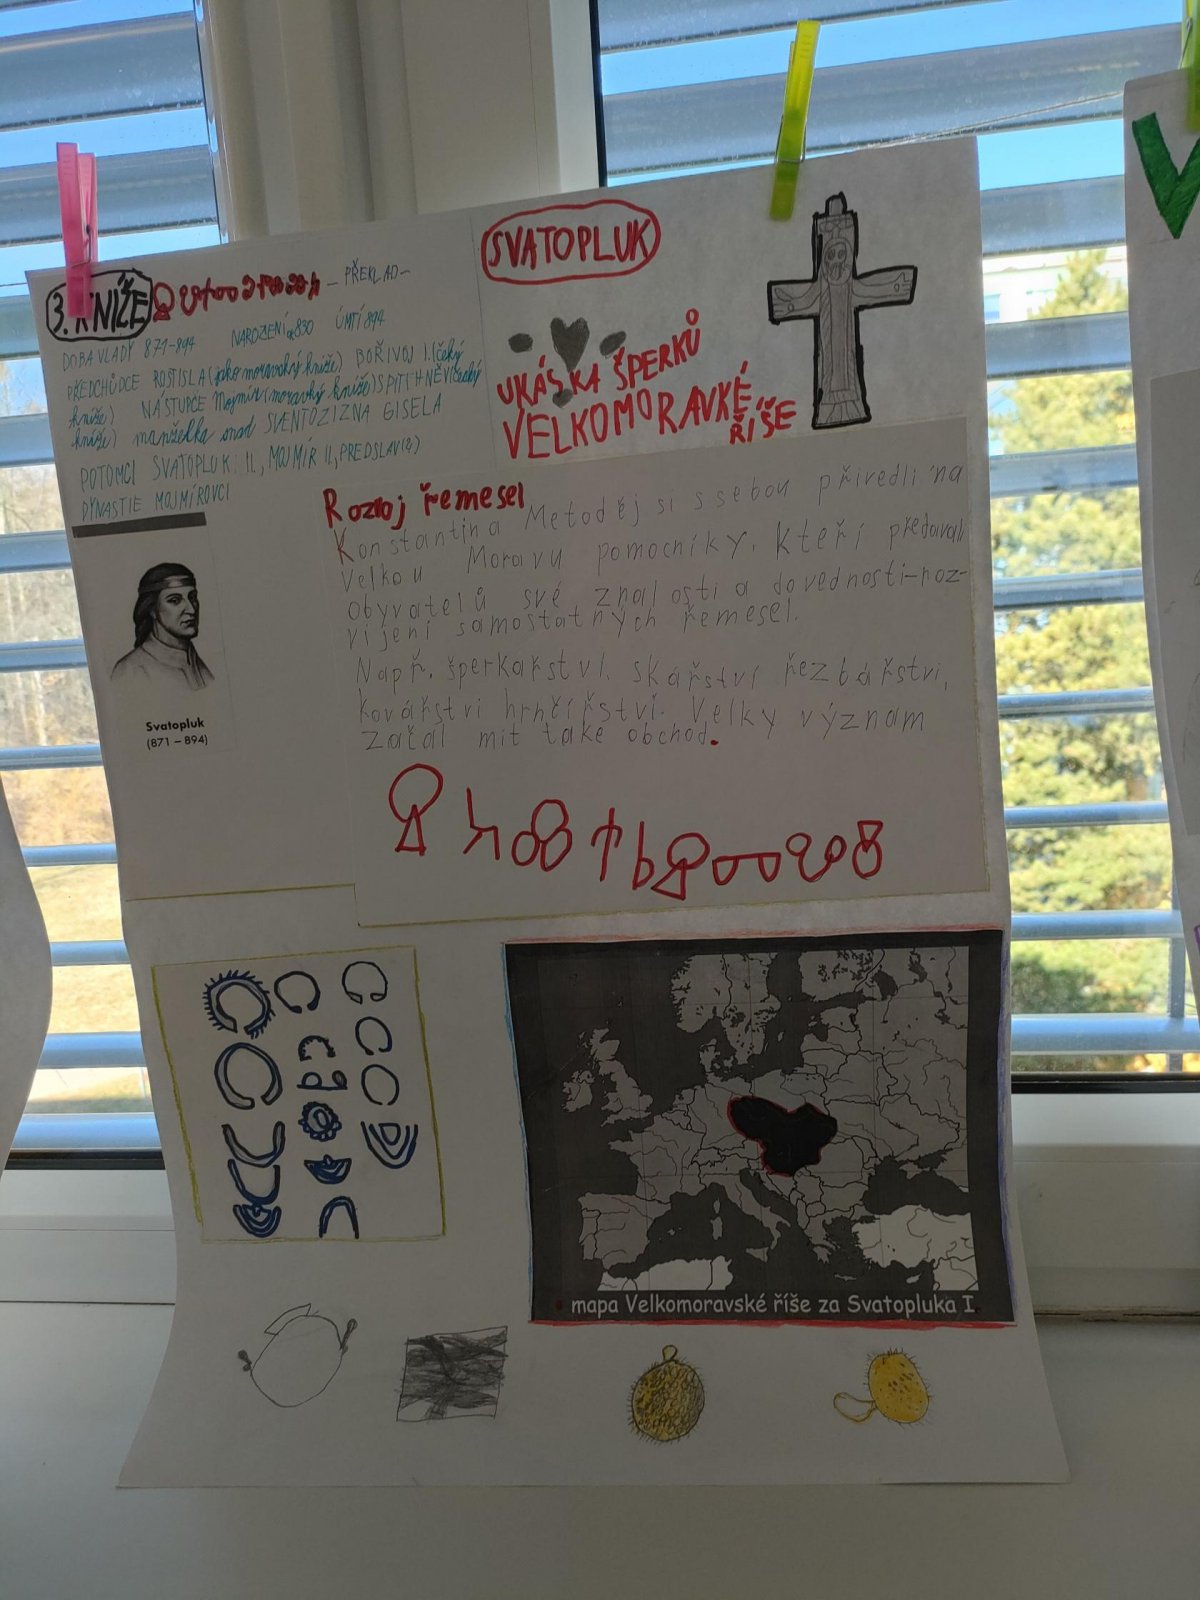 3. KNÍŽE
– PŘEKLAD–
DOBA VLÁDY 871-894 NAROZENÍ 830 ÚMTÍ 894
PŘEDCHŮDCE ROSTISLA (jako moravský kníže) BOŘIVOJ I. (český
kníže) NÁSTUPCE Mojmír (moravský kníže) SPITIHNĚV (český
kníže) manželka snad SVENTOZIZNA GISELA
POTOMCI SVATOPLUK: II., MOJMÍR II., PREDSLAV(?)
DYNASTIE MOJMÍROVCI
SVATOPLUK
UKÁSKA ŠPERKŮ
VELKOMORAVKÉ
ŘÍŠE
Rozvoj řemesel
Konstantin a Metoděj si s sebou přivedli na
Velkou Moravu pomocníky. Kteří předavali
obyvatelů své znalosti a dovednosti-roz-
vijení samostatných řemesel.
Např. šperkařství. skářství řezbářství,
kovářství hrnčířství. Velky význam
začal mit take obchod.
Svatopluk
(871 – 894)
mapa Velkomoravské říše za Svatopluka I.